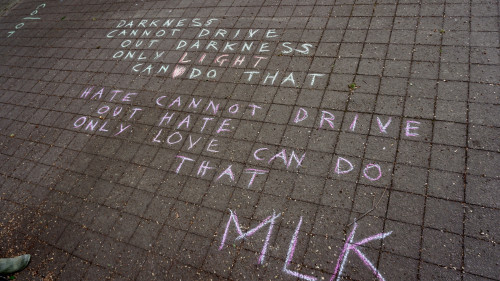 DARKNESS
CANNOT DRIVE
OUT DARKNESS
ONLY LIGHT
CAN DO THAT
HATE CANNOT DRIVE
OUT HATE
ONLY LOVE CAN DO
THAT
MLK